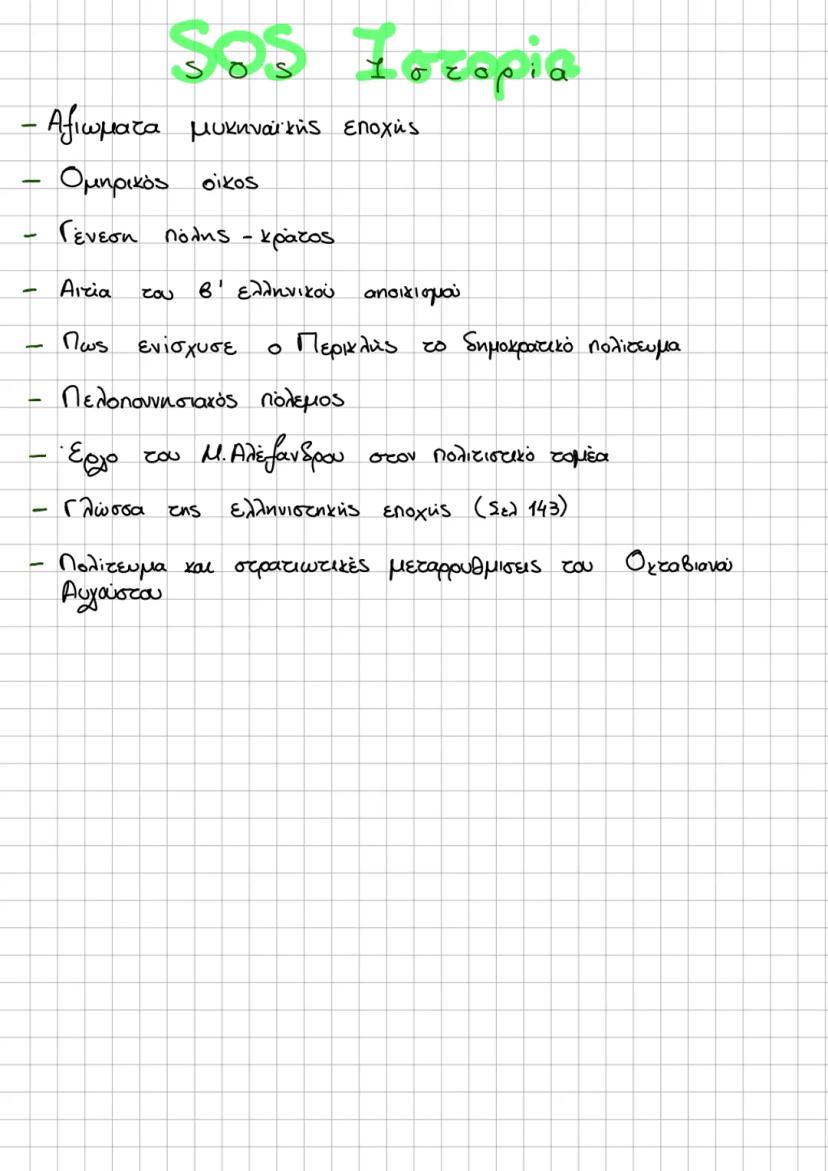 SOS Ιστορία
- Αξιώματα μυκηναϊκής εποχής
- Ομηρικός οίκος
- Γένεση πόλης - κράτος
- Αιτία του β' ελληνικού αποικισμού
- Πως ενίσχυσε ο Περικλής το δημοκρατικό πολίτευμα
- Πελοποννησιακός πόλεμος
- Έργο του Μ. Αλέξανδρου στον πολιτιστικό τομέα
- Γλώσσα της ελληνιστηκής εποχής (Σελ 143)
- Πολίτευμα και στρατιωτικές μεταρρουθμισεις του Οκταβιανού
Αυγούστου